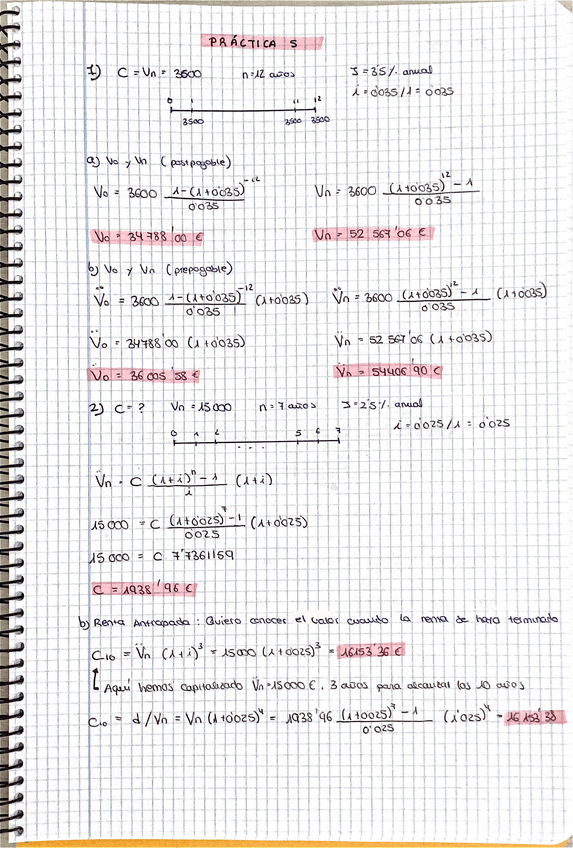 PRÁCTICA 5
1) C = Vn = 3600 n = 12 años J = 3'5 % anual
i = 0'035/1 = 0'035
0 1 11 12
3500 3500 3500
a) V0 y Vn (postpagable)
V0 = 3600 (1-(1+0'035)^-12)/0'035 Vn = 3600 ((1+0'035)^12 - 1)/0'035
V0 = 34788'00 € Vn = 52 567'06 €
b) V0 y Vn (prepagable)
V̈0 = 3600 (1-(1+0'035)^-12)/0'035 (1+0'035) V̈n = 3600 ((1+0'035)^12 - 1)/0'035 (1+0'035)
V̈0 = 34788'00 (1+0'035) V̈n = 52 567'06 (1+0'035)
V̈0 = 36 005'58 € V̈n = 54406'90 €
2) C = ? Vn = 15000 n = 7 años J = 2'5 % anual
i = 0'025/1 = 0'025
0 1 2 ... 5 6 7
V̈n = C ((1+i)^n - 1)/i (1+i)
15 000 = C ((1+0'025)^7 - 1)/0'025 (1+0'025)
15 000 = C 7'7361159
C = 1938'96 €
b) Renta Anticipada : Quiero conocer el valor cuando la renta se haya terminado
C10 = V̈n (1+i)^3 = 15000 (1+0'025)^3 = 16153'36 €
Aquí hemos capitalizado V̈n = 15000 €, 3 años para alcanzar los 10 años
C10 = d/Vn = Vn (1+0'025)^4 = 1938'96 ((1+0'025)^7 - 1)/0'025 (1'025)^4 = 16 153'38